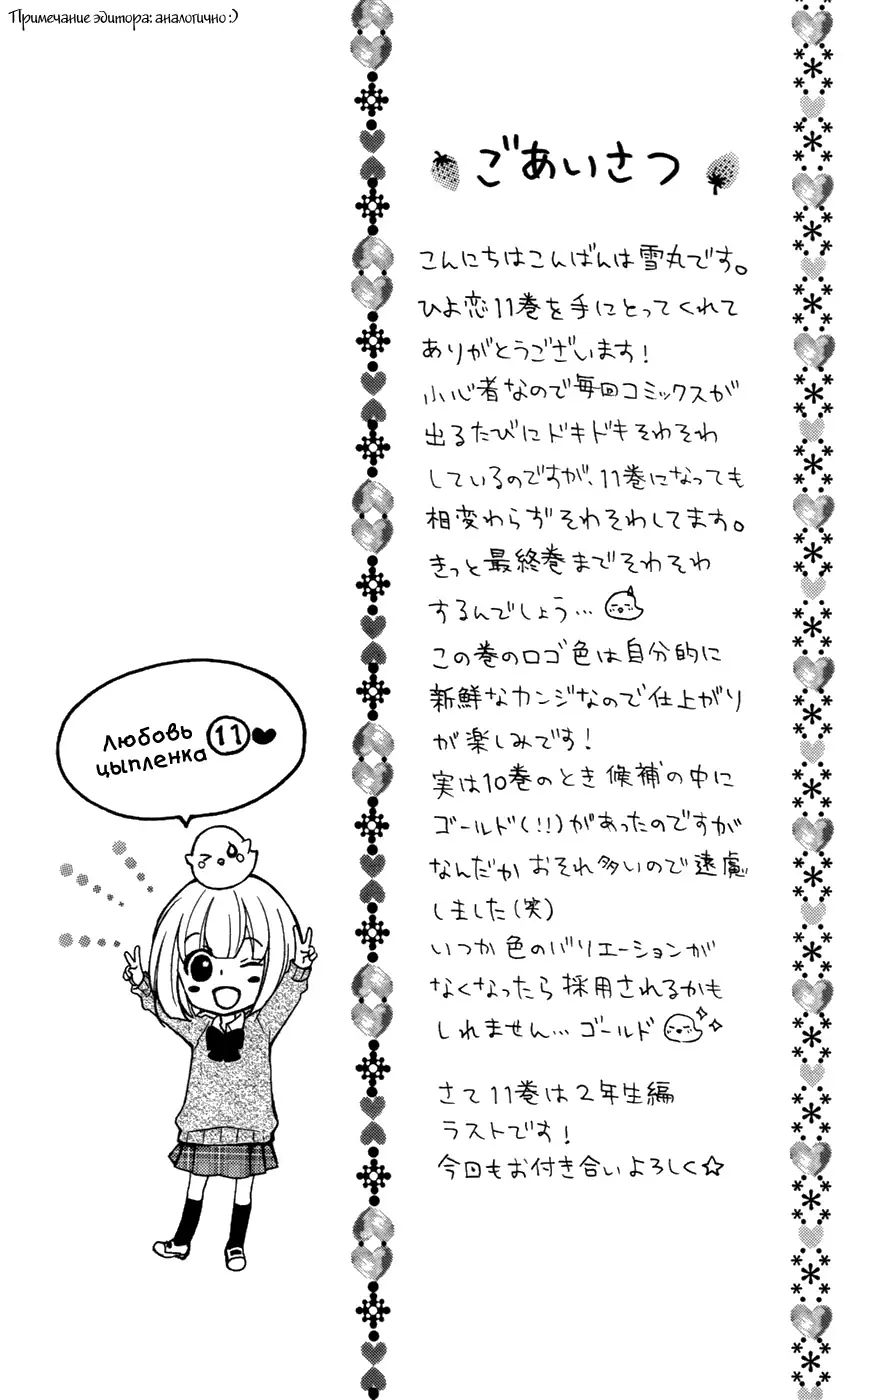 Примечание эдитора: аналогично :)
ごあいさつ
こんにちはこんばんは雪丸です。
ひよ恋11巻を手にとってくれて
ありがとうございます！
小心者なので毎回コミックスが
出るたびにドキドキそわそわ
しているのですが、11巻になっても
相変わらずそわそわしてます。
きっと最終巻までそわそわ
するんでしょう…
この巻のロゴ色は自分的に
新鮮なカンジなので仕上がり
が楽しみです！
実は10巻のとき候補の中に
ゴールド(!!)があったのですが
なんだかおそれ多いので遠慮
しました(笑)
いつか色のバリエーションが
なくなったら採用されるかも
しれません…ゴールド
さて11巻は2年生編
ラストです！
今回もお付き合いよろしく☆
Любовь
цыпленка 11 ♥